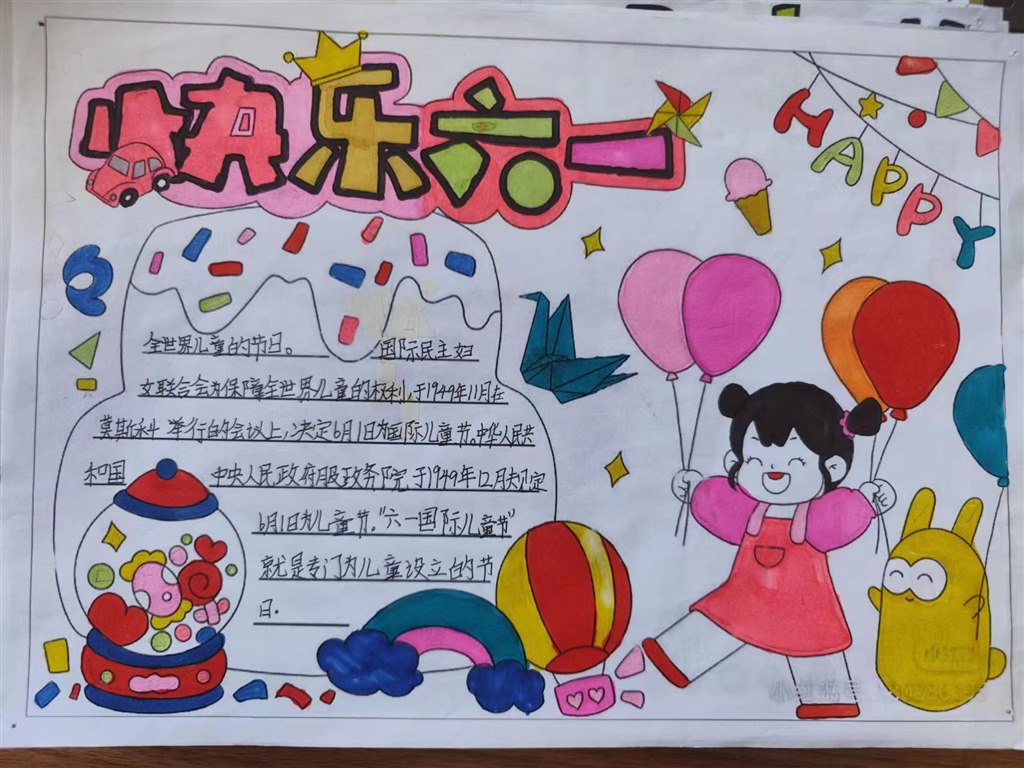 快乐六一
HAPPY
全世界儿童的节日。 国际民主妇
女联合会为保障全世界儿童的权利,于1949年11月在
莫斯科举行的会议上,决定6月1日为国际儿童节。中华人民共
和国 中央人民政府服政务院于1949年12月规定
6月1日为儿童节。"六一国际儿童节"
就是专门为儿童设立的节
日.